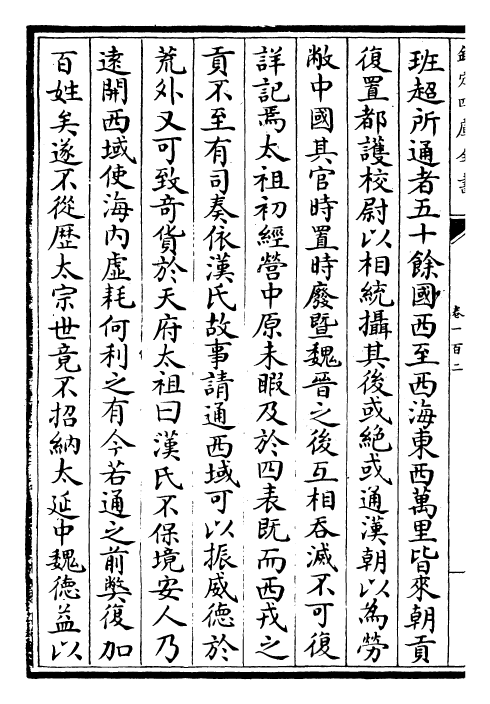 欽定四庫全書
卷一百二
班超所通者五十餘國西至西海東西萬里皆來朝貢
復置都護校尉以相統攝其後或絶或通漢朝以為勞
敝中國其官時置時廢暨魏晉之後互相吞滅不可復
詳記焉太祖初經營中原未暇及於四表既而西戎之
貢不至有司奏依漢氏故事請通西域可以振威德於
荒外又可致奇貨於天府太祖曰漢氏不保境安人乃
逺開西域使海内虛耗何利之有今若通之前弊復加
百姓矣遂不從歴太宗世竟不招納太延中魏德益以